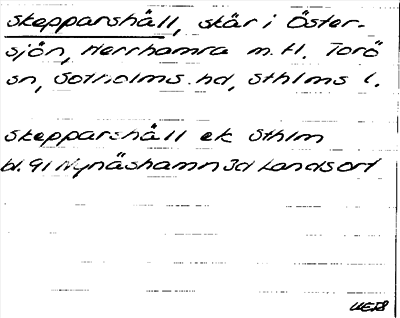 skepparshäll, skär i Öster-
sjön, Herrhamra m. fl. Torö
sn, Sotholms hd, Sthlms l.
skepparshäll ek Sthlm
bl. 91 Nynäshamn 3d Landsort